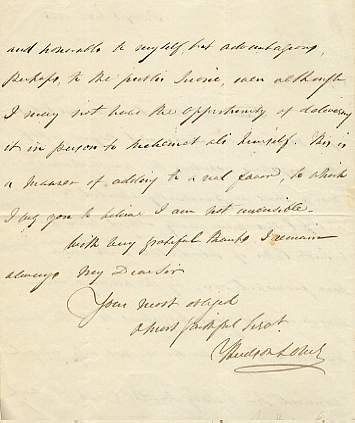 and honorable to myself, but advantageous,
perhaps, to the public Service, even although
I may not have the opportunity of delivering
it in person to Mehemet Ali himself. This is
a manner of adding to a real favor, to which
I beg you to believe I am not insensible.
With very grateful thanks I remain
always My Dear Sir
Your most obliged
& most faithful Servt
Hudson Lowe